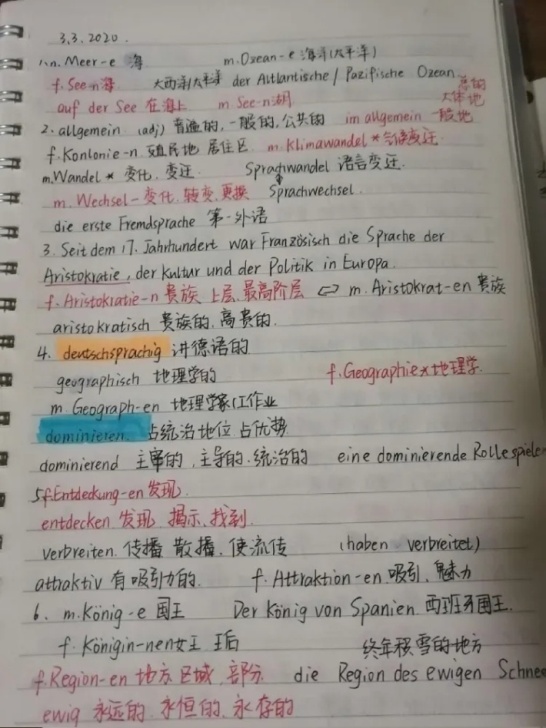 3.3.2020.
1. n. Meer-e 海 m. Ozean-e 海洋(太平洋)
f. See-n 海 大西洋/太平洋 der Altlantische/Pazifische Ozean
auf der See 在海上 m See-n 湖 总的 大体地
2. allgemein (adj) 普遍的,一般的,公共的 im allgemein 一般地
f. Konlonie-n 殖民地 居住区 m. Klimawandel * 气候变迁
m. Wandel * 变化,变迁 Sprachwandel 语言变迁
m. Wechsel - 变化,转变,更换 Sprachwechsel.
die erste Fremdsprache 第一外语
3. Seit dem 17. Jahrhundert war Französisch die Sprache der
Aristokratie, der Kultur und der Politik in Europa.
f. Aristokratie-n 贵族 上层,最高阶层 ⇔ m. Aristokrat-en 贵族
aristokratisch 贵族的,高贵的.
4. deutschsprachig 讲德语的
geographisch 地理学的 f. Geographie * 地理学
m. Geograph-en 地理学家(工作业
dominieren 占统治地位 占优势
dominierend 主宰的,主导的,统治的 eine dominierende Rolle spielen
5 f. Entdeckung-en 发现
entdecken 发现,揭示,找到.
verbreiten 传播 散播,使流传 (haben verbreitet)
attraktiv 有吸引力的. f. Attraktion-en 吸引,魅力
6. m. König-e 国王 Der König von Spanien 西班牙国王.
f. Königin-nen 女王 王后 终年积雪的地方
f. Region-en 地方 区域,部分 die Region des ewigen Schnee
ewig 永远的,永恒的,永存的